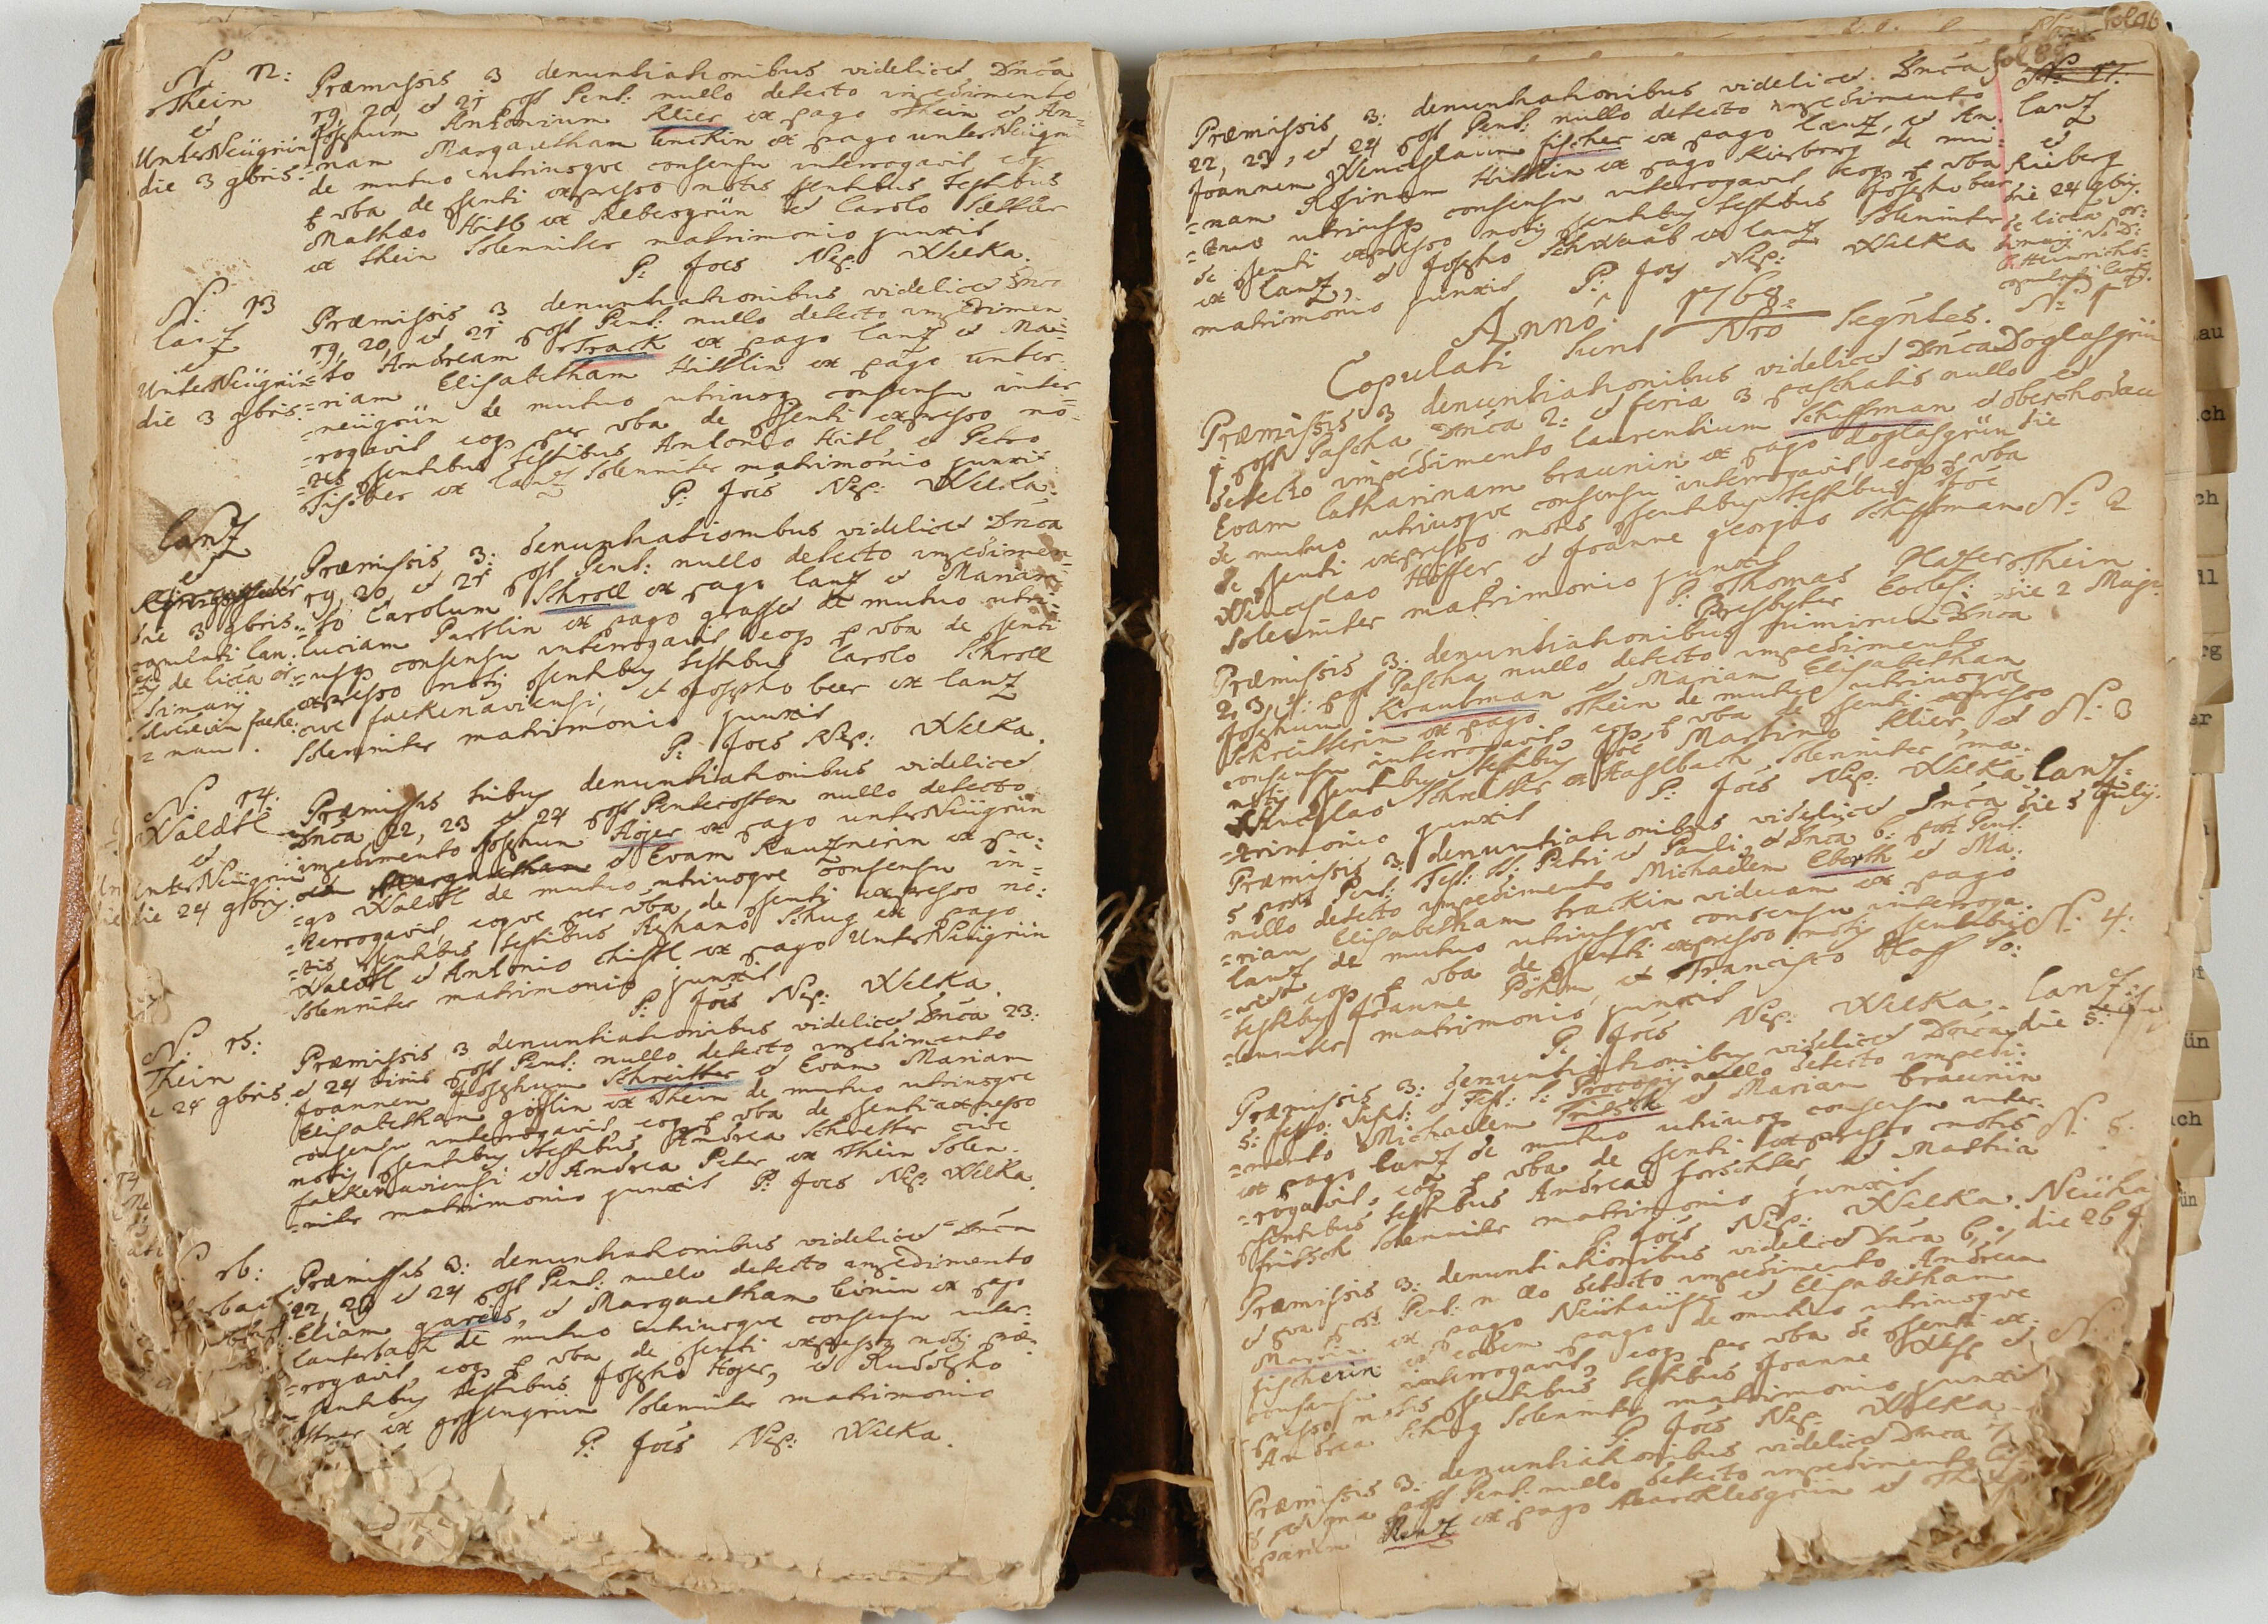 N. 12:
Thein
et
UnterNeügrün
die 3 9bris.
Præmissis 3 denuntiationibus videlicet Dnca
19, 20, et 21 post Pent: nullo detecto impedimento
Josephum Antonium Klier ex pago Thein et An=
=nam Margaretham Lenckin ex pago unterNeügrün
de mutuo utriusque consensu interrogavit, eosq
p vba de psenti expresso notis psentibus testibus
Mathæo Hitl ex Rebesgrün et Carolo Sattler
ex Thein Solenniter matrimonio junxit
P: Joes Nep: Welka.
N. 13
lanz
et
UnterNeügrün
die 3 9bris.
Præmissis 3 denuntiationibus videlicet Dnca
19, 20, et 21 post Pent: nullo detecto impedimen
=to Andream Track ex pago lanz et Ma=
=riam Elisabetham Hittlin ex pago unter
=neügrün de mutuo utriusq consensu inter=
=rogavit eosq per vba de psenti expresso no=
=tis psentibus testibus Antonio Hitl et Petro
Fischer ex lanz Solenniter matrimonio junxit
P: Joes Nep: Welka.
lanz
et
die 3 9bris.
copulati lan:
de licta or:
dinarij
Præmissis 3: denuntiationibus videlicet Dnca
19, 20, et 21 post Pent: nullo detecto impedimen=
=to Carolum Schroll ex pago lanz et Mariam
luciam Partlin ex pago grasset de mutuo utri=
=usq consensu interrogavit eosq p vba de psenti
expresso notis psentibus testibus Carolo Schroll
cive falkenaviensi, et Josepho beer ex lanz
Solenniter matrimonio junxit
P: Joes Nep: Welka.
N. 14.
Waldtl
et
unterNeügrün
die 24 9bris.
Præmissis tribus denuntiationibus videlicet
Dnca 22, 23 et 24 post Pentecosten nullo detecto
impedimento Josephum Hojer ex pago unterNeügrün
et Evam Rauznerin ex pa=
=go Waldtl de mutuo utriusque consensu in=
=terrogavit, eosque per vba de psenti expresso no=
=tis psentibus testibus Stephano Schug ex pago
Waldtl et Antonio Christl ex pago UnterNeügrün
Solenniter matrimonio junxit
P: Joes Nep: Welka.
N. 15:
Thein
24 9bris.
Præmissis 3 denuntiationibus videlicet Dnca 23:
et 24 post Pent: nullo detecto impedimento
Joannem Josephum Schreitter et Evam Mariam
Elisabetham gösslin ex Thein de mutuo utriusque
consensu interrogavit, eosq p vba de psenti expresso
notis psentibus testibus Andrea Schretter cive
falkenaviensi et Andrea Peter ex Thein Solen=
=niter matrimonio junxit P: Joes Nep: Welka.
16:
Præmissis 3: denuntiationibus videlicet Dnca
22, 23 et 24 post Pent: nullo detecto impedimento
Eliam gareis, et Margaretham Leinin ex pago
lauterbach de mutuo utriusque consensu inter=
=rogavit, eosq p vba de psenti expresso notis præ=
=sentibus testibus Josepho Hojer, et Rudolpho
ex gossengrün Solenniter matrimonio
P: Joes Nep: Welka.
fol 96
N. 17.
lanz
et
Kirberg
die 24 9bris.
de licta or:
dinarij
Præmissis 3: denuntiationibus videlicet Dnca
22, 23, et 24 post Pent: nullo detecto impedimento
Joannem Wenceslaum fischer ex pago lanz, et An=
=nam Rosinam Hittlin ex pago Kirberg de mu=
=tuo utriusq consensu interrogavit eosq p vba
de psenti expresso notis psentibus testibus Josepho beer
ex lanz, et Josepho Schwaab ex lanz Solenniter
matrimonio junxit P: Joes Nep: Welka
Anno: 1768.
Copulati Sunt Nro Seqntes.
N: 1
Doglasgrün
et
oberchodau
Præmissis 3 denuntiationibus videlicet Dnca
1 post Pascha, Dnca 2: et feria 3 paschatis nullo
detecto impedimento laurentium Schiffman et
Evam Catharinam braunin ex pago doglasgrün
de mutuo utriusque consensu interrogavit, eosq p vba
de psenti expresso notis psentibus testibus
Wenceslao Hoffer et Joanne georgio Schiffman
Solenniter matrimonio junxit
P. Thomas Plazer
Presbyter Eccles:
N: 2
Thein
die 2 Maji.
Præmissis 3: denuntiationibus nimirum Dnca
2, 3, 4: post Pascha nullo detecto impedimento
Josephum Kraubman et Mariam Elisabetham
Schreitterin ex pago Thein de mutuo utriusque
consensu interrogavit, eosq p vba de psenti expresso
notis psentibus testibus Martino Klier, et
Wenceslao Schreitter ex Haslbach Solenniter ma=
=trimonio junxit P: Joes Nep: Welka
N: 3
lanz
die 5 Julij.
Præmissis 3 denuntiationibus videlicet Dnca
5 post Pent: Fest: SS: Petri et Pauli, et Dnca 6: post Pent:
nullo detecto impedimento Michaelem Eberth et Ma=
=riam Elisabetham trackin viduam ex pago
lanz de mutuo utriusque consensu interroga=
=vit eosq p vba de psenti expresso notis psentibus
testibus Joanne Böhm, et Francisco Hoff So=
=lenniter matrimonio junxit
P: Joes Nep: Welka.
N: 4:
lanz
die 5:
Præmissis 3: denuntiationibus videlicet Dnca
5: et Fest: S: Procopij nullo detecto impedi=
=mento Michaelem Fritsch et Mariam braunin
ex pago lanz de mutuo utriusq consensu inter=
=rogavit, eosq p vba de psenti expresso notis
psentibus testibus Andrea forschter, et Mathia
fritsch Solenniter matrimonio junxit
P: Joes Nep: Welka.
N: 5.
Neüha
die 26
Præmissis 3: denuntiationibus videlicet Dnca 6,
et post Pent: nullo detecto impedimento Andream
Martin ex pago Neuhäuser et Elisabetham
fischerin ex eodem pago de mutuo utriusque
consensu interrogavit, eosq per vba de psenti ex=
=presso notis psentibus testibus Joanne Wess et
Andrea Schug Solenniter matrimonio junxit
P: Joes Nep: Welka
N.
Præmissis 3: denuntiationibus videlicet Dnca 7
post Pent: nullo detecto impedimento Cas=
=parum Renz ex pago Maarklesgrün et